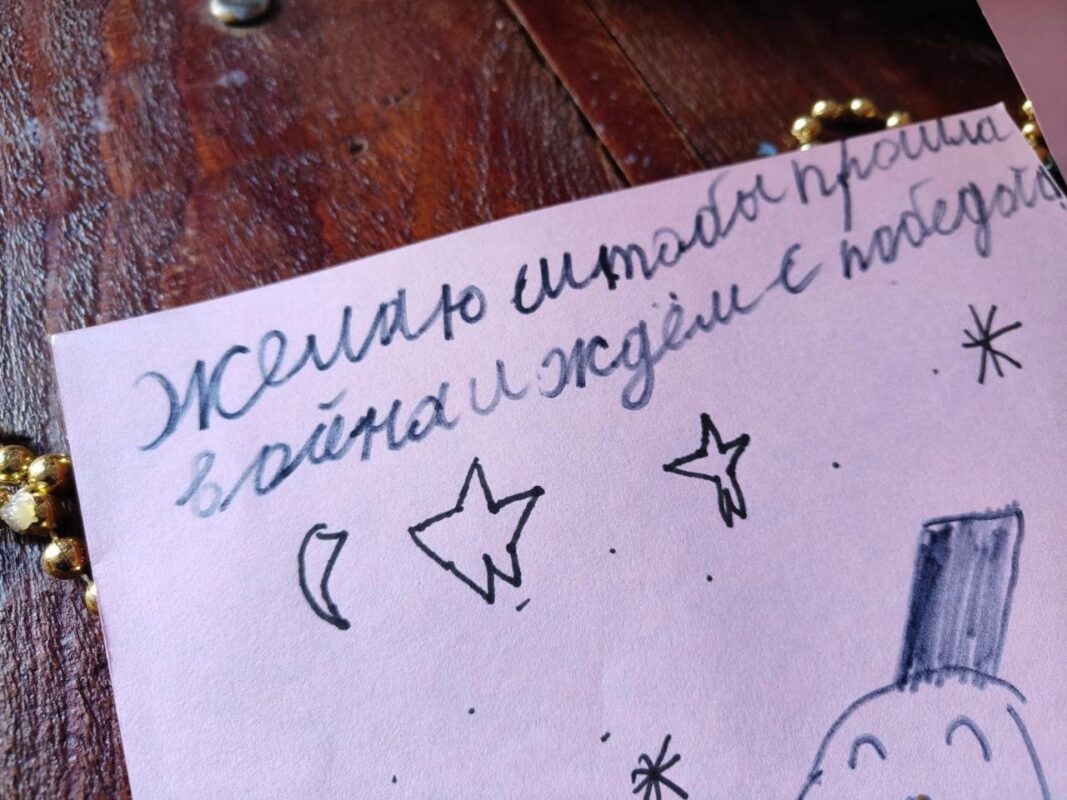 Желаю штобы прошла
война и ждём с победой!